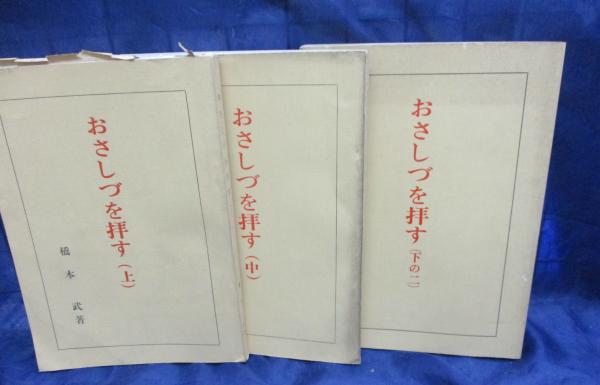 おさしづを拝す(上)
橋本武著
おさしづを拝す(中)
おさしづを拝す(下の二)